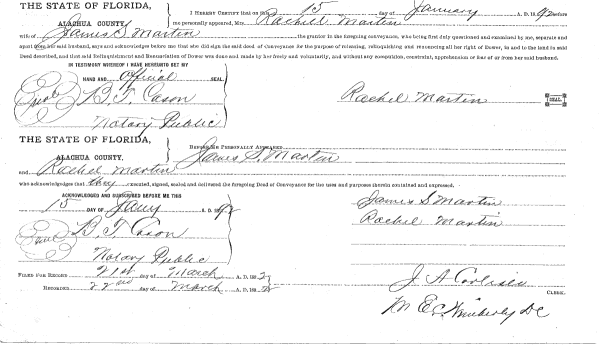 THE STATE OF FLORIDA,
ALACHUA COUNTY,
I HEREBY CERTIFY that on this 15 day of January A. D. 1892 before
me personally appeared, Mrs. Rachel Martin
wife of James S. Martin the grantor in the foregoing conveyance, who being first duly questioned and examined by me, separate and
apart from her said husband, says and acknowledges before me that she did sign the said deed of Conveyance for the purpose of releasing, relinquishing and renouncing all her right of Dower, in and to the land in said
Deed described, and that said Relinquishment and Renunciation of Dower was done and made by her freely and voluntarily, and without any compulsion, constraint, apprehension or fear of or from her said husband.
IN TESTIMONY WHEREOF I HAVE HEREUNTO SET MY
HAND AND Official SEAL.
Seal B. T. Cason Rachel Martin SEAL
Notary Public
THE STATE OF FLORIDA,
ALACHUA COUNTY,
BEFORE ME PERSONALLY APPEARED James S. Martin
and Rachel Martin
who acknowledges that they executed, signed, sealed and delivered the foregoing Deed of Conveyance for the uses and purposes therein contained and expressed.
ACKNOWLEDGED AND SUBSCRIBED BEFORE ME THIS
15 DAY OF Jany A. D. 1892
James S Martin
Rachel Martin
Seal B. T. Cason
Notary Public
FILED FOR RECORD 21st day of March A. D. 1892
RECORDED 22nd day of March A. D. 1892
J A Carlisle
CLERK.
M E Wimberly DC